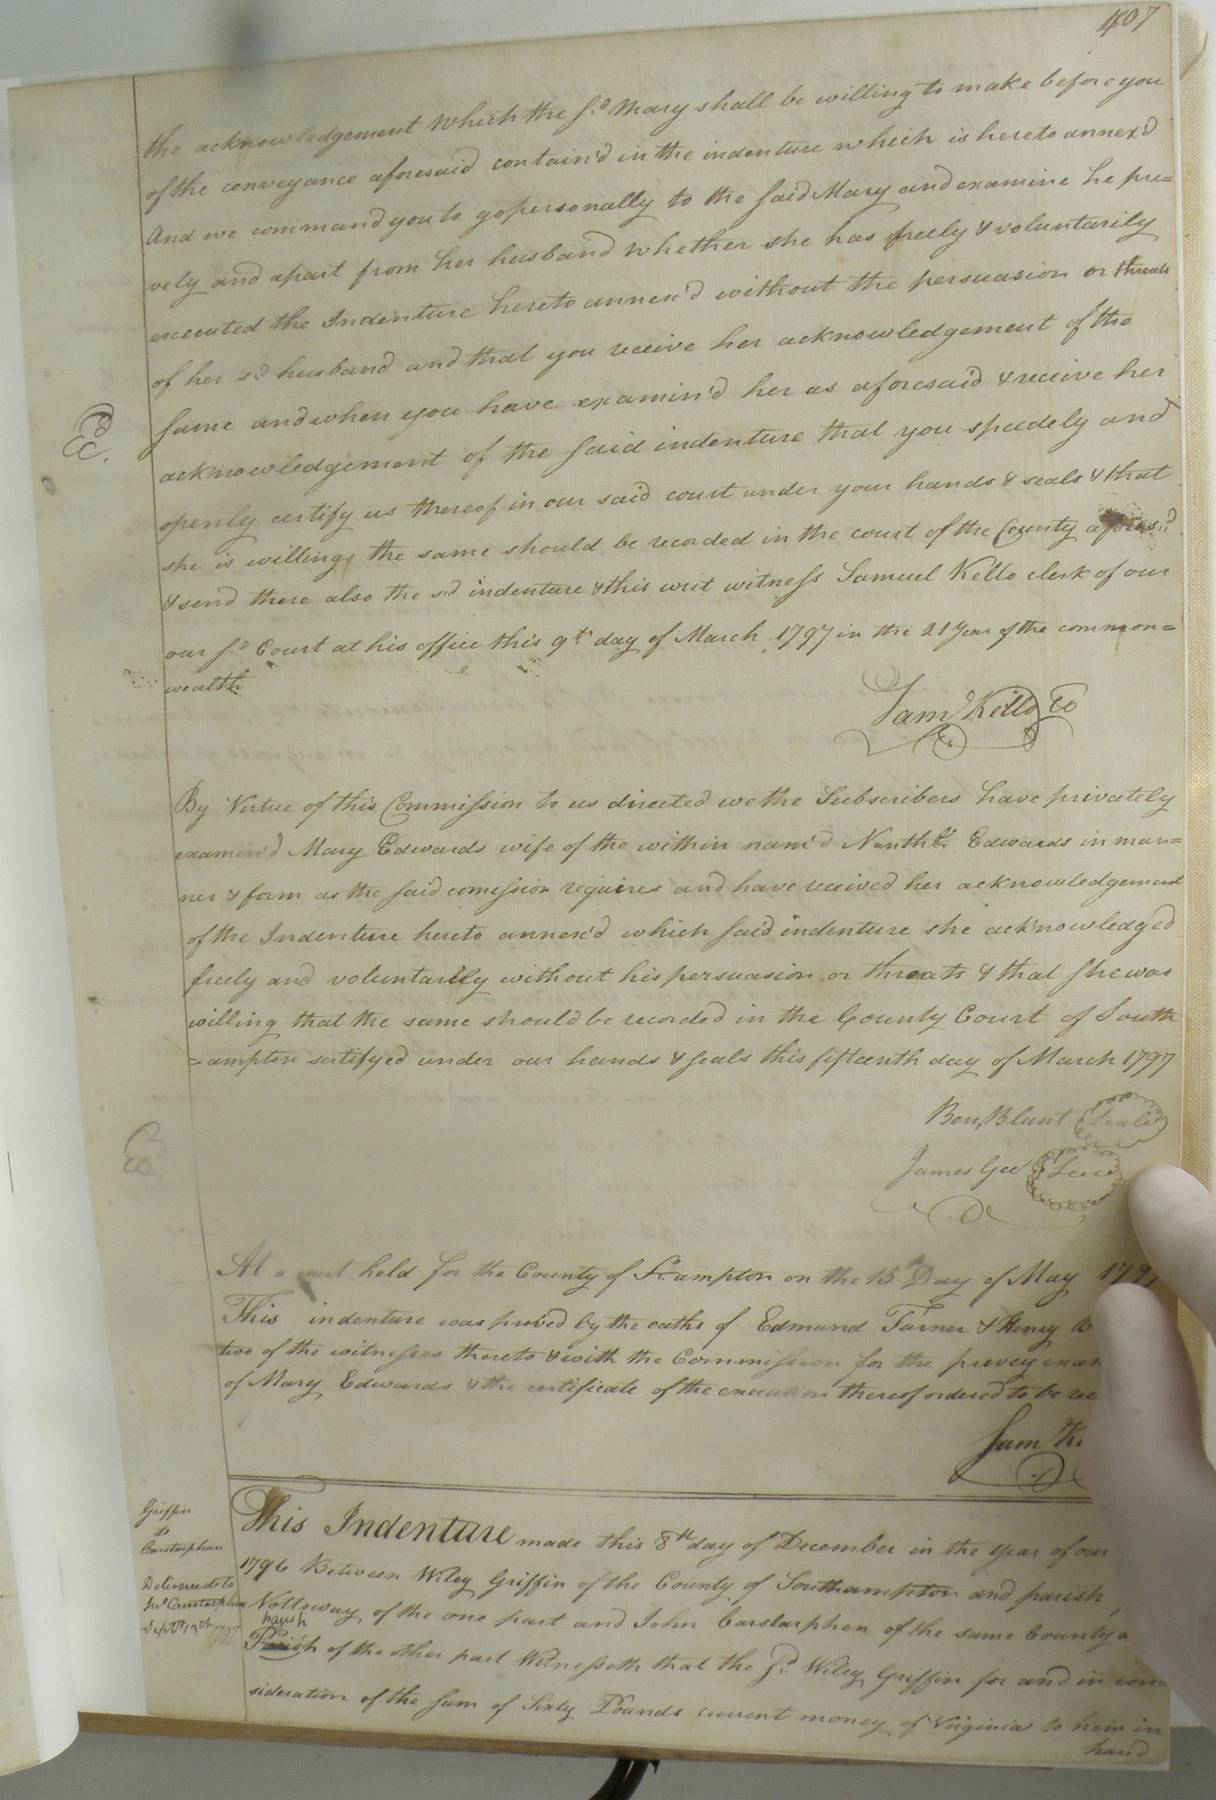 407
the acknowledgement which the s.d Mary shall be willing to make before you
of the conveyance aforesaid contain'd in the indenture which is hereto annex'd
And we command you to go personally to the said Mary and examine he pri=
vely and apart from her husband whether she has freely & voluntarily
executed the Indenture hereto annex'd without the persuasion or threats
of her s.d husband and that you receive her acknowledgement of the
same and when you have examin'd her as aforesaid & receive her
acknowledgement of the said indenture that you speedely and
openly certify us thereof in our said court under your hands & seals & that
she is willing the same should be recorded in the court of the County aforesd
& send there also the sd indenture & this writ witness Samuel Kello clerk of our
our s.d Court at his office this 9th day of March 1797 in the 21 Year of the common=
wealth
Saml Kello
By Virtue of this Commission to us directed we the Subscribers have privately
examin'd Mary Edwards wife of the within nam'd Edwards in man=
ner & form as the said comession requires and have received her acknowledgement
of the Indenture hereto annex'd which said indenture she acknowledged
freely and voluntarily without his persuasion or threats & that she was
willing that the same should be recorded in the County Court of South
=ampton sertifyed under our hands & seals this fifteenth day of March 1797
Ben, Blunt Seal
James Gee
At a court held for the County of So.ampton on the 15th Day of May 179
This indenture was proved by the oaths of Edmund Turner & Henry
two of the witnesses thereto & with the Commission for the privey exam
of Mary Edwards & the certificate of the execution thereof ordered to be rec
Sam Ke
Griffin
to
Carstarphen
Delivered to
Jno Carstarphen
Septr 13th 1797
This Indenture made this 8th day of December in the year of our
1796 Between Wiley Griffin of the County of Southampton and parish
Nottoway of the one part and John Carstarphen of the same County
parish
Parish of the other part Witnesseth that the s.d Wiley Griffin for and in con=
sideration of the sum of Sixty Pounds current money of Virginia to him in
hand